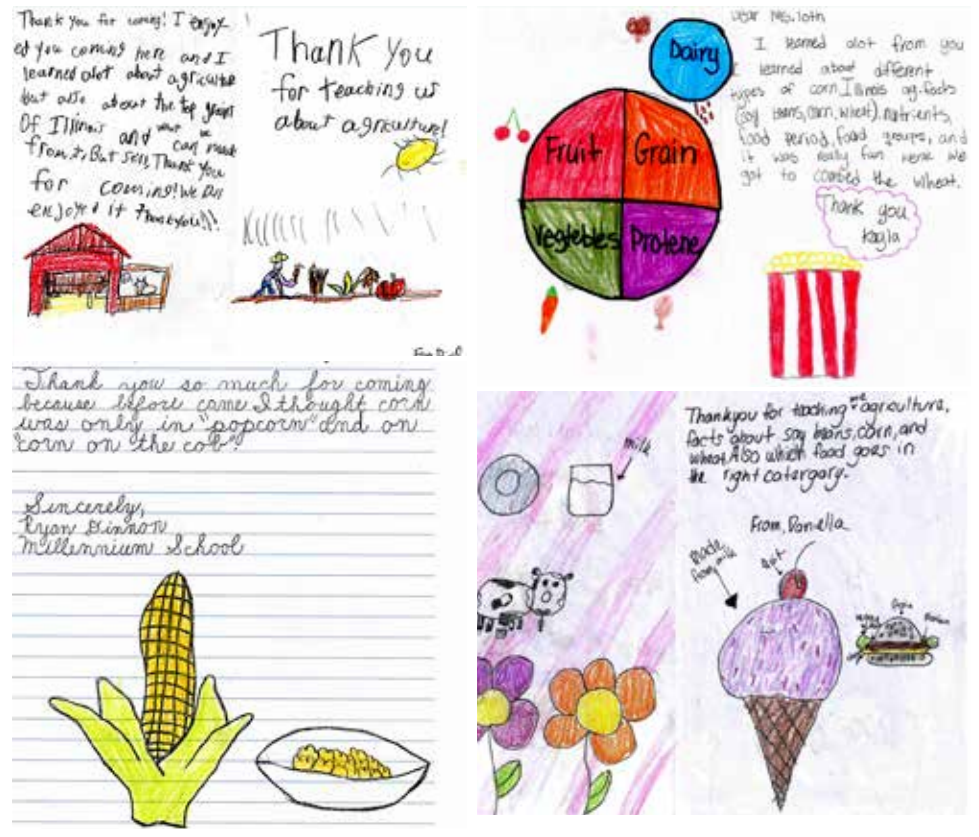 Thank you for coming! I enjoy
ed you coming here and I
learned alot about agriculture
but also about the top
Of Illinois and can made
from it, But Thank You
for coming! We
enjoyed it Thank you!!!
Thank You
for teaching us
about agriculture!
Dairy
Fruit
Grain
Vegtebles
Protene
Dear Ms. Toth
I learned alot from you
I learned about different
types of corn, Illinois ag-facts
(soy beans, corn, wheat), nutrients,
food period, food groups, and
it was really fun we
got to the wheat.
Thank you
Kayla
Thank you so much for coming
because before came I thought corn
was only in "popcorn" and on
"corn on the cob".
Sincerely,
Ryan
Millennium School
milk
Thankyou for teaching agriculture,
facts about soy beans, corn, and
wheat. Also which food goes in
the right catergory.
From, Daniella
made
from milk